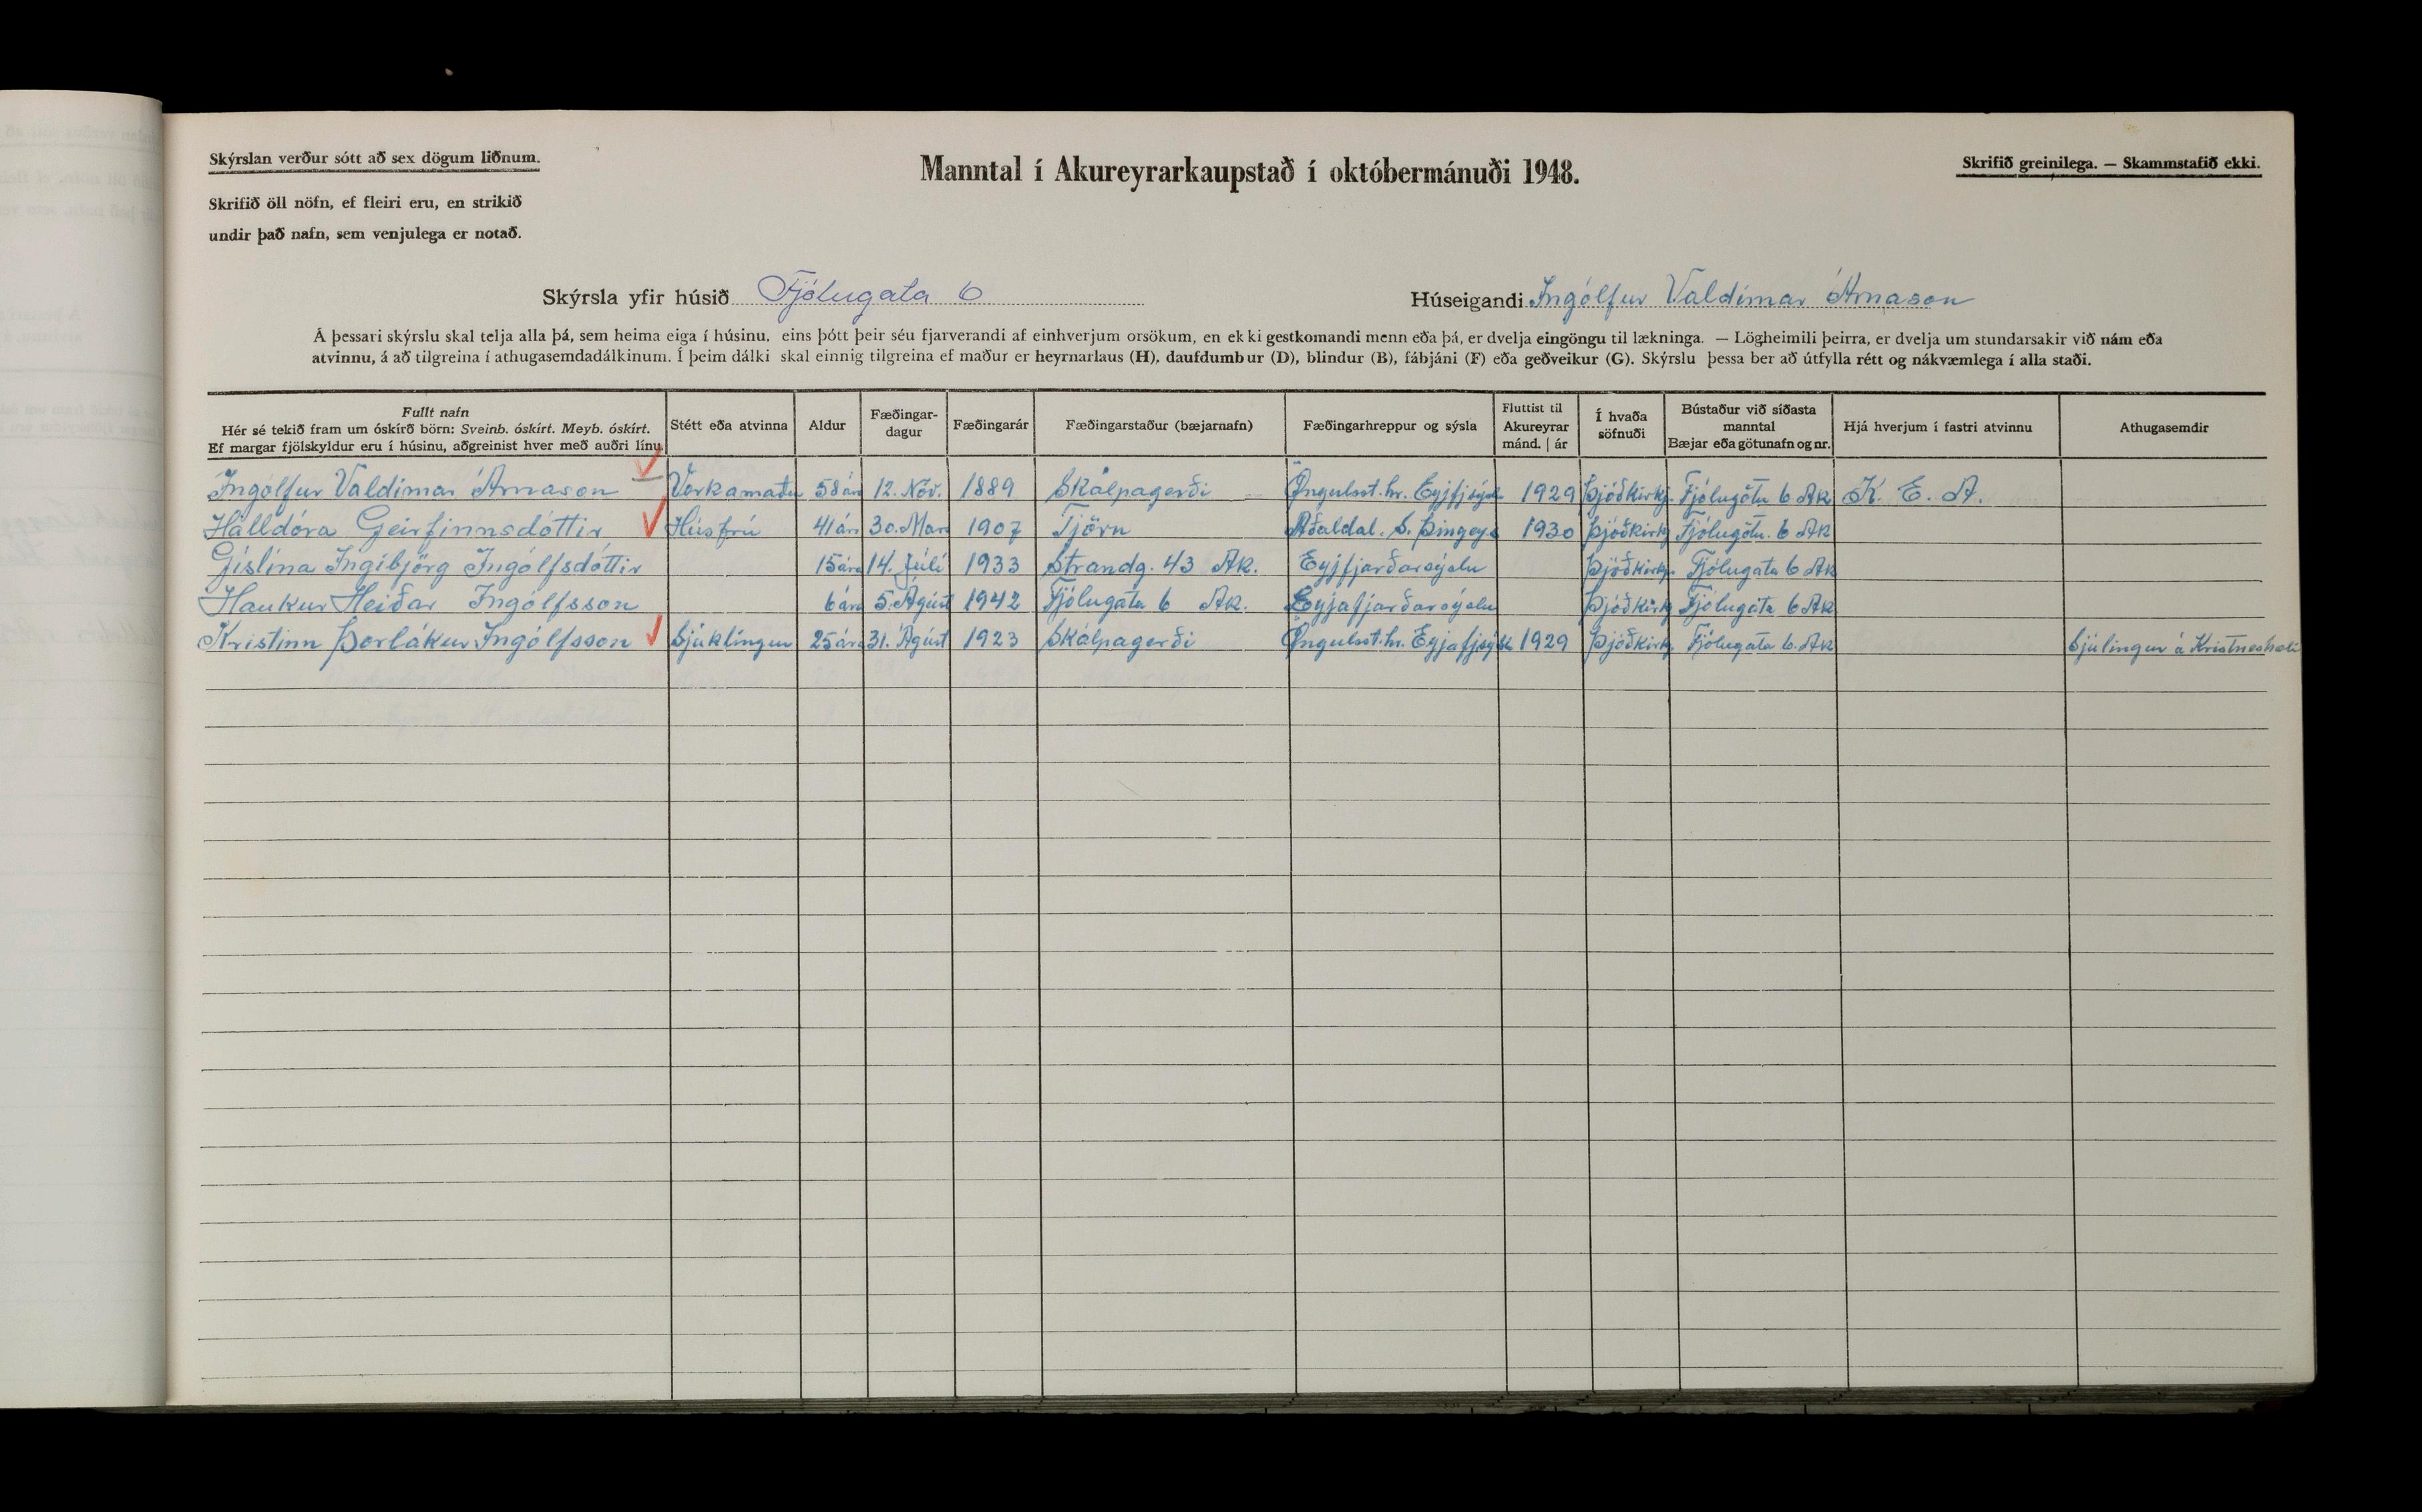 Skýrslan verður sótt að sex dögum liðnum.
Manntal í Akureyrarkaupstað í októbermánuði 1948.
Skrifið greinilega. — Skammstafið ekki.
Skrifið öll nöfn, ef fleiri eru, en strikið
undir það nafn, sem venjulega er notað.
Skýrsla yfir húsið Fjólugata 6
Húseigandi Ingólfur Valdimar Árnason
Á þessari skýrslu skal telja alla þá, sem heima eiga í húsinu, eins þótt þeir séu fjarverandi af einhverjum orsökum, en ekki gestkomandi menn eða þá, er dvelja eingöngu til lækninga. — Lögheimili þeirra, er dvelja um stundarsakir við nám eða
atvinnu, á að tilgreina í athugasemdadálkinum. Í þeim dálki skal einnig tilgreina ef maður er heyrnarlaus (H), daufdumbur (D), blindur (B), fábjáni (F) eða geðveikur (G). Skýrslu þessa ber að útfylla rétt og nákvæmlega í alla staði.
Fullt nafn
Hér sé tekið fram um óskírð börn: Sveinb. óskírt. Meyb. óskírt.
Ef margar fjölskyldur eru í húsinu, aðgreinist hver með auðri línu.
Stétt eða atvinna
Aldur
Fæðingar-
dagur
Fæðingarár
Fæðingarstaður (bæjarnafn)
Fæðingarhreppur og sýsla
Fluttist til
Akureyrar
mánd. | ár
Í hvaða
söfnuði
Bústaður við síðasta
manntal
Bæjar eða götunafn og nr.
Hjá hverjum í fastri atvinnu
Athugasemdir
Ingólfur Valdimar Árnason Verkamaður 58 ára 12. Nóv. 1889 Skálpagerði Öngulsst.hr. Eyjfjsýsl. 1929 Þjóðkirkj. Fjólugötu 6 Ak K. E. A.
Halldóra Geirfinnsdóttir Húsfrú 41 ára 30. Mars 1907 Tjörn Aðaldal. S. Þingey.s 1930 Þjóðkirkj Fjólugötu. 6 Ak
Gíslína Ingibjörg Ingólfsdóttir 15 ára 14. Júlí 1933 Strandg. 43 Ak. Eyjfjarðarsýslu Þjóðkirkj. Fjólugata 6 Ak
Haukur Heiðar Ingólfsson 6 ára 5. Ágúst 1942 Fjólugata 6 Ak. Eyjafjarðarsýslu Þjóðkirkj Fjólugata 6 Ak
Kristinn Þorlákur Ingólfsson Sjúklingur 25 ára 31. Ágúst 1923 Skálpagerði Öngulsst.hr. Eyjafjsýsl 1929 Þjóðkirkj. Fjólugata 6. Ak Sjúlingur á Kristneshæli